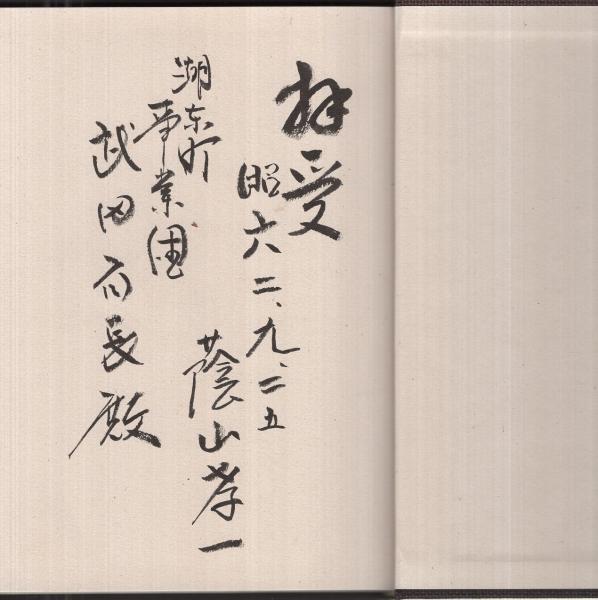 拝受
昭六二、九、二五
蔭山孝一
湖東町
事業団
武田局長殿